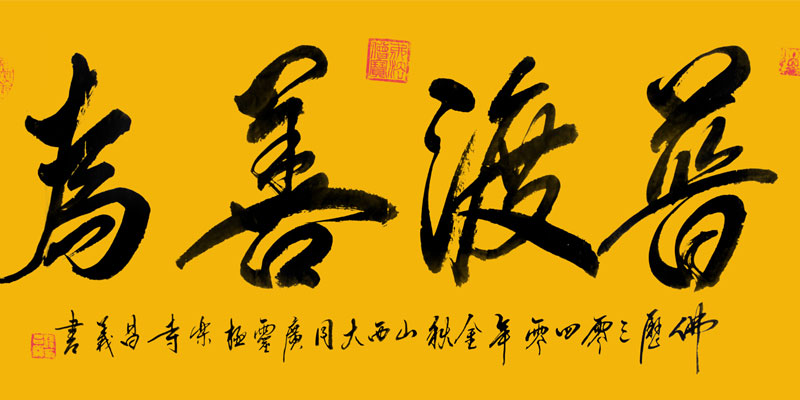 普渡善為
佛歷三零四零年金秋山西大同廣靈極樂寺昌義書